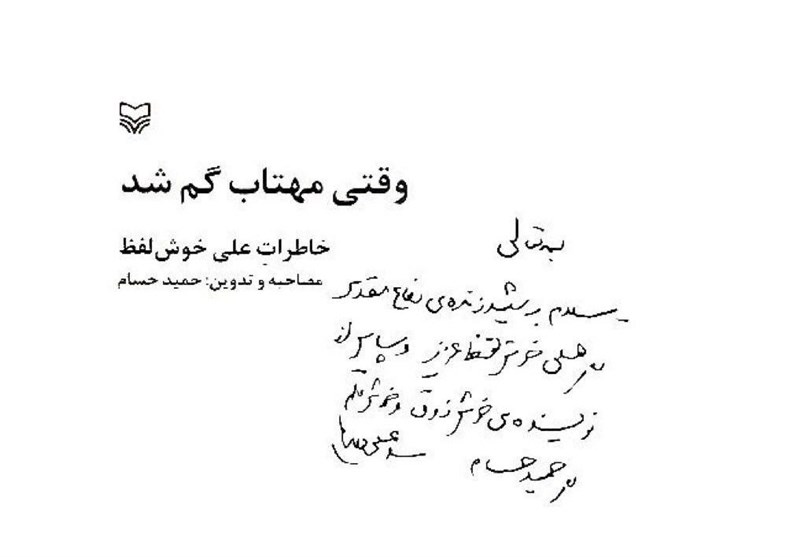 وقتی مهتاب گم شد
خاطراتِ علی خوش‌لفظ
مصاحبه و تدوین: حمید حسام
بسمه تعالی
سلام بر شهید زنده‌ی دفاع مقدس
علی خوش‌لفظ عزیز و سپاس از
نویسنده‌ی خوش ذوق و خوش قلم
حمید حسام